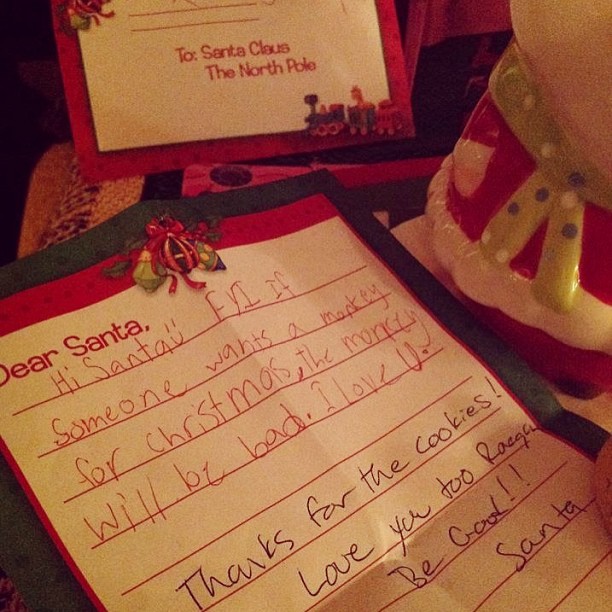 To: Santa Claus
The North Pole
Dear Santa,
Hi Santa!! FYI If
someone wants a monkey
for christmas, the monkey
will be bad. I love U.
Thanks for the cookies!
Love you too Raegan
Be Good!!
Santa